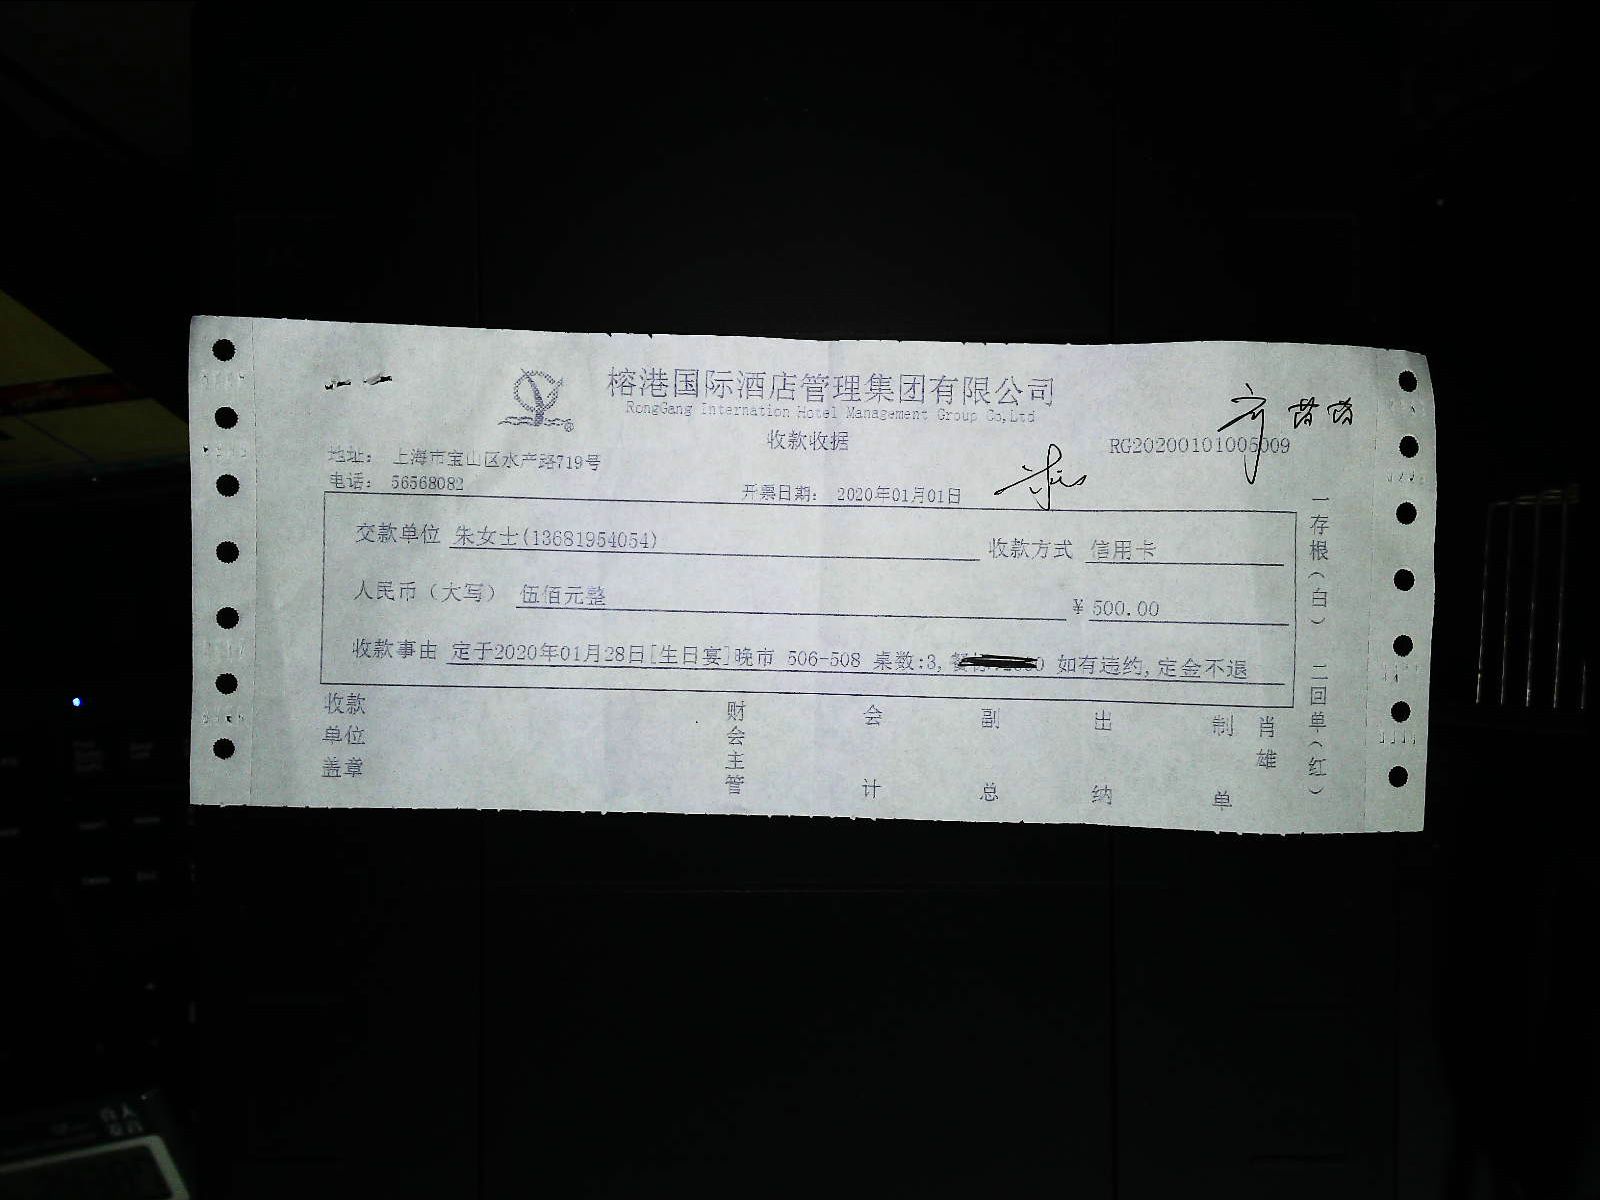 榕港国际酒店管理集团有限公司
RongGang Internation Hotel Management Group Co,Ltd
收款收据
RG20200101005009
地址： 上海市宝山区水产路719号
电话： 56568082
开票日期： 2020年01月01日
交款单位 朱女士(13681954054) 收款方式 信用卡
人民币（大写） 伍佰元整 ¥ 500.00
收款事由 定于2020年01月28日[生日宴]晚市 506-508 桌数:3, 如有违约,定金不退
收款单位盖章 财会主管 会计 副总 出纳 制单 肖雄
一存根（白） 二回单（红）